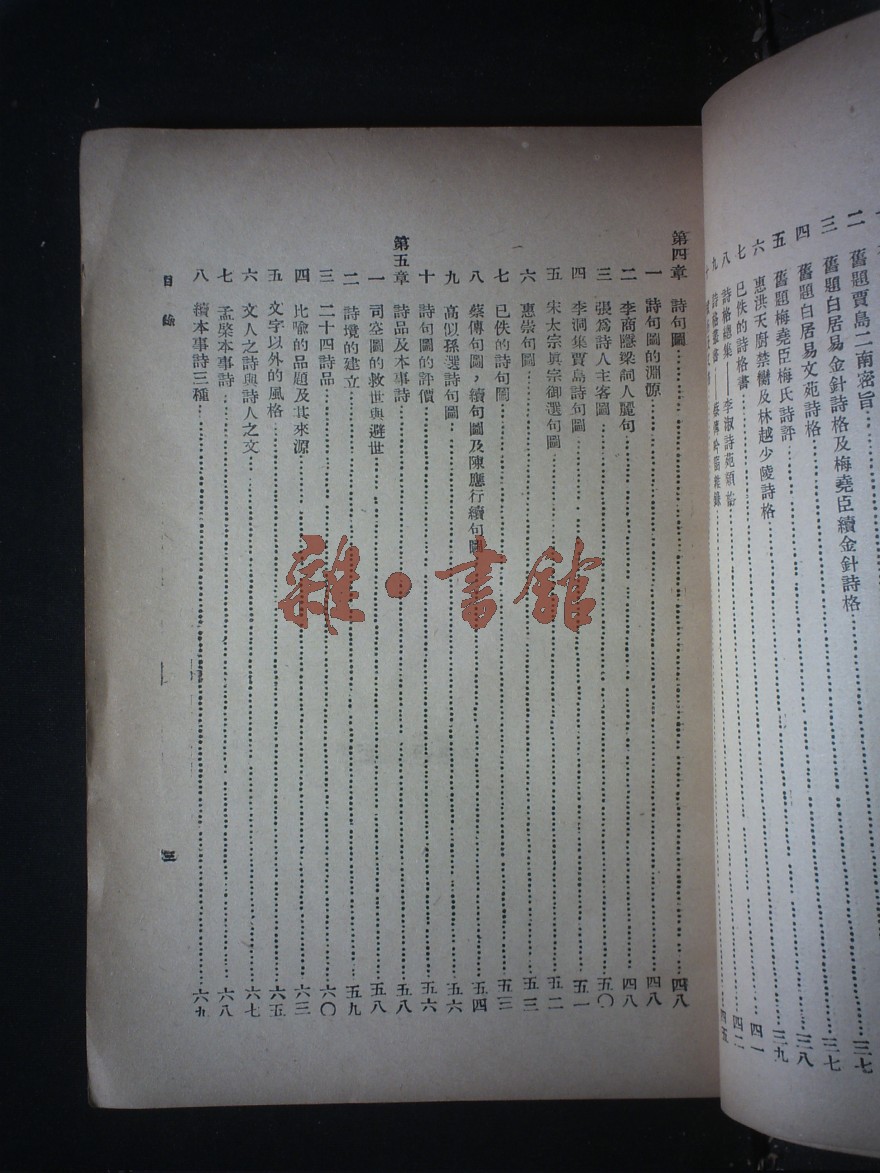 二 舊題賈島二南密旨 三七
三 舊題白居易金針詩格及梅堯臣續金針詩格 三七
四 舊題白居易文苑詩格 三八
五 舊題梅堯臣梅氏詩評 三九
六 惠洪天廚禁臠及林越少陵詩格 四一
七 已佚的詩格書 四二
八 詩格總集——李淑詩苑類格
九 四五
第四章 詩句圖 四八
一 詩句圖的淵源 四八
二 李商隱梁詞人麗句 四八
三 張爲詩人主客圖 五〇
四 李洞集賈島詩句圖 五一
五 宋太宗真宗御選句圖 五二
六 惠崇句圖 五三
七 已佚的詩句圖 五三
八 蔡傳句圖，續句圖及陳應行續句圖 五四
九 高似孫選詩句圖 五六
十 詩句圖的評價 五六
第五章 詩品及本事詩 五八
一 司空圖的救世與避世 五八
二 詩境的建立 五九
三 二十四詩品 六〇
四 比喩的品題及其來源 六三
五 文字以外的風格 六五
六 文人之詩與詩人之文 六七
七 孟棨本事詩 六八
八 續本事詩三種 六九
目錄
三
雜·書館